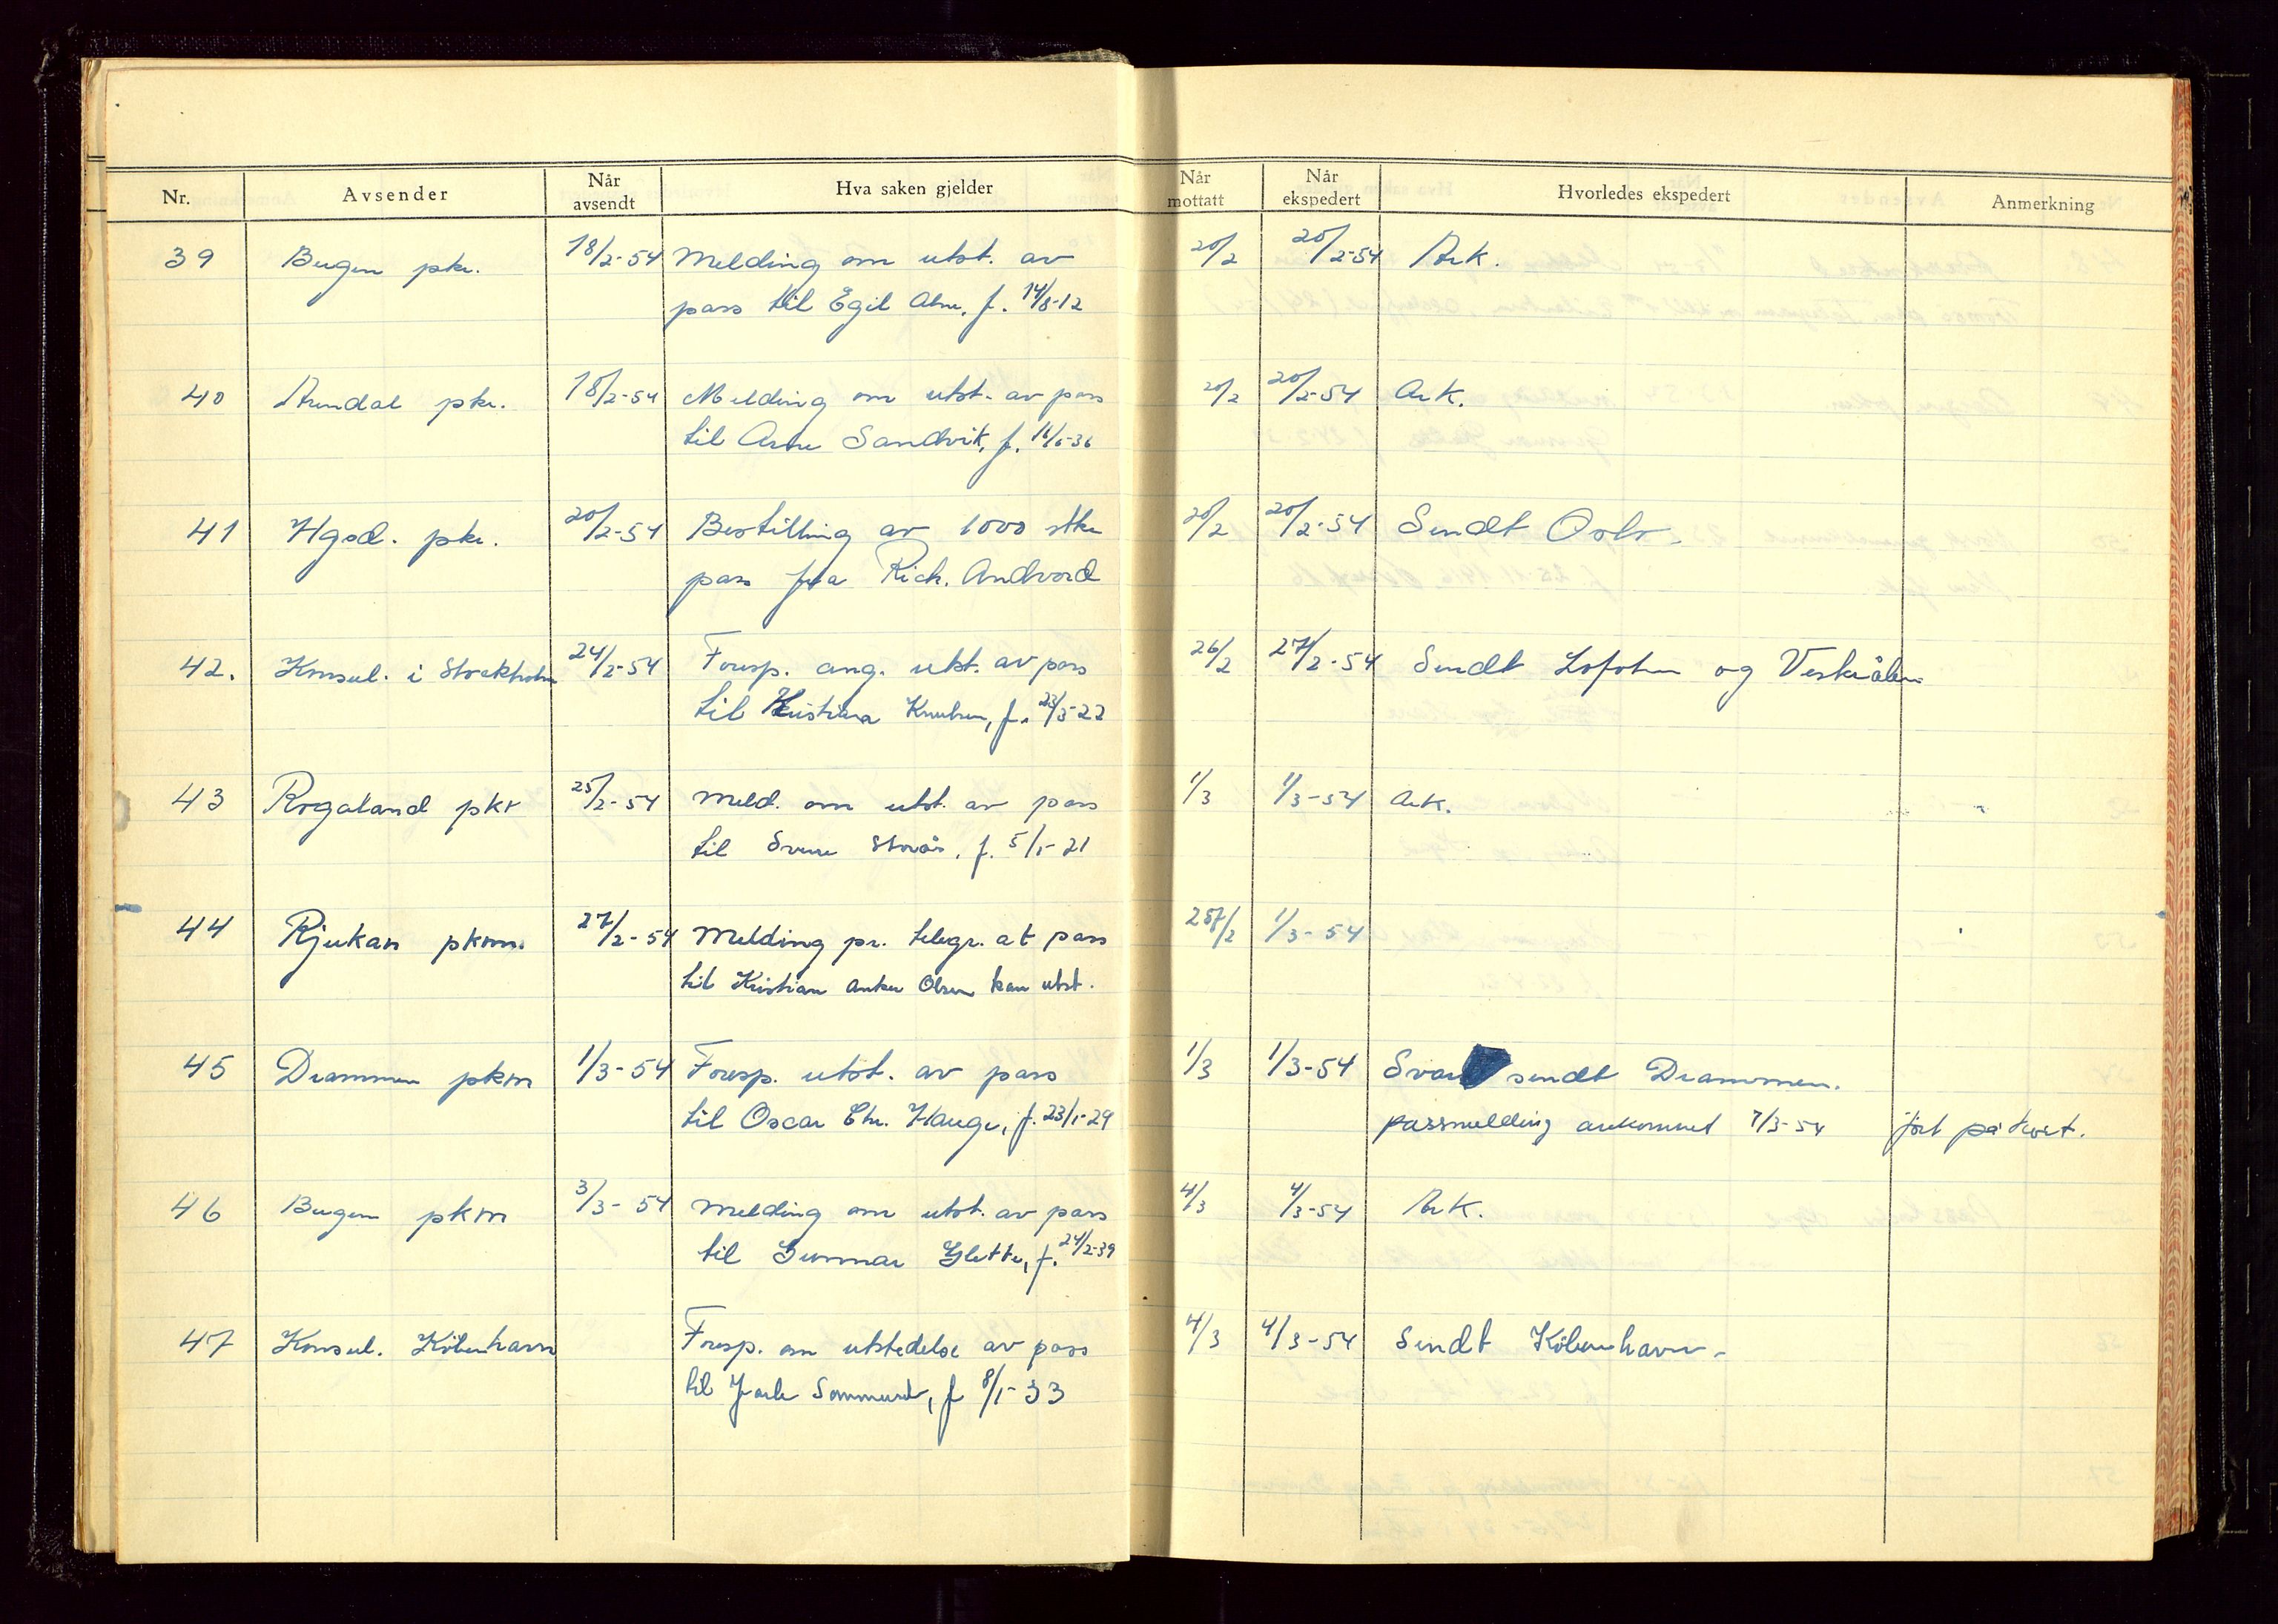 Nr. Avsender Når avsendt Hva saken gjelder Når mottatt Når ekspedert Hvorledes ekspedert Anmerkning
39 Bergen pkr. 18/2-54 Melding om utst. av 20/2 20/2-54 Ark.
pass til Egil Alme, f. 14/8-12
40 Arendal pkr. 18/2-54 Melding om utst. av pass 20/2 20/2-54 Ark.
til Arne Sandvik, f. 16/5-36
41 Hgsd. pkr. 20/2-54 Bestilling av 1000 stkr 20/2 20/2-54 Sendt Oslo.
pass fra Rich. Andvord
42. Konsul. i Stockholm 24/2-54 Foresp. ang. utst. av pass 26/2 27/2-54 Sendt Lofoten og Vesterålen
til Kristiana Knutsen, f. 23/3-22
43 Rogaland pkr 25/2-54 Meld. om utst. av pass 1/3 1/3-54 Ark.
til Sverre Storås, f. 5/1-21
44 Rjukan pkm. 27/2-54 Melding pr. telegr. at pass 1/3-54
til Kristian Anker Olsen kan utst.
45 Drammen pkm 1/3-54 Foresp. utst. av pass 1/3 1/3-54 Svar sendt Drammen.
til Oscar Chr. Hauge, f. 23/1-29 passmelding ankommet 7/3-54 ført på kort.
46 Bergen pkm 3/3-54 Melding om utst. av pass 4/3 4/3-54 Ark.
til Gunnar Glette, f. 24/2-39
47 Konsul. København Foresp. om utstedelse av pass 4/3 4/3-54 Sendt København.
til Jarle f 8/1-33